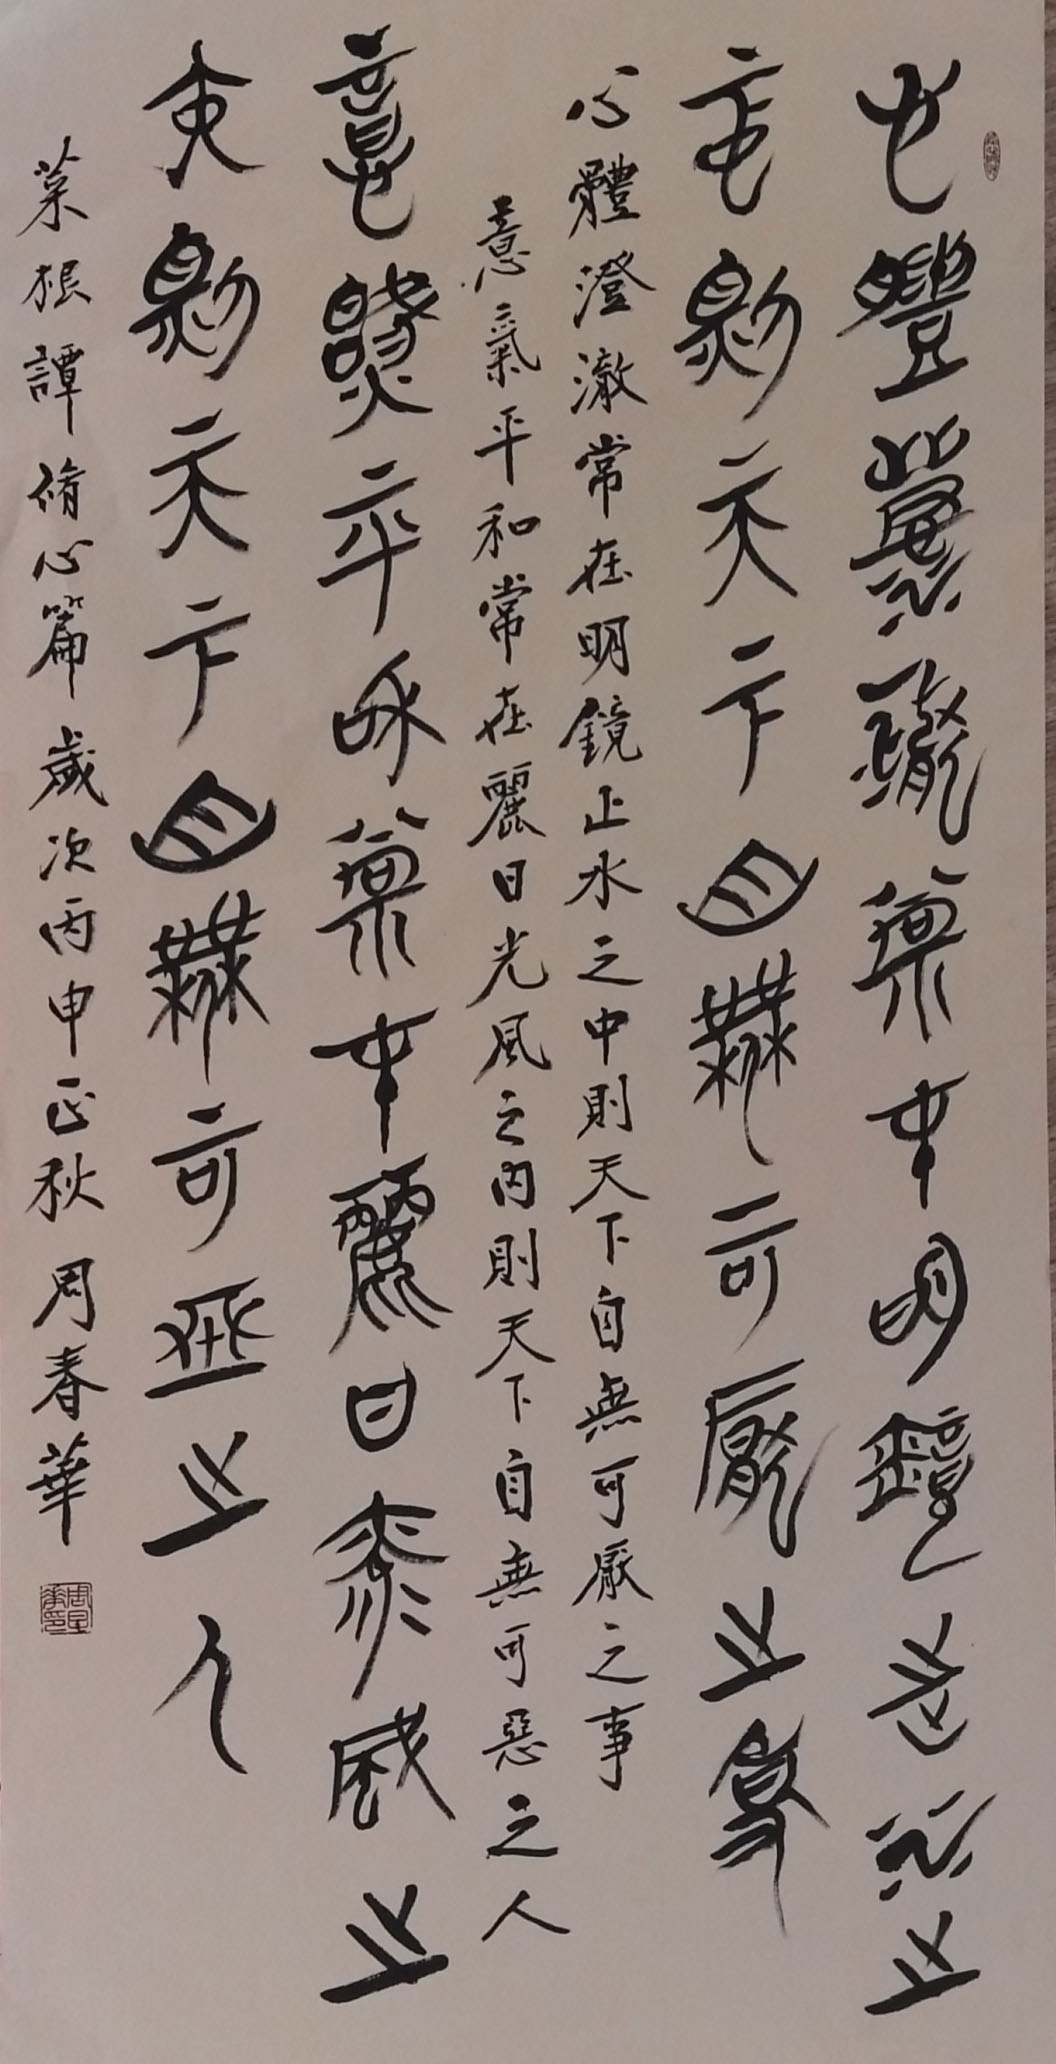 心體澄澈常在明鏡止水之
中則天下自無可厭之事
心體澄澈常在明鏡止水之中則天下自無可厭之事
意氣平和常在麗日光風之内則天下自無可惡之人
意氣平和常在麗日光風之
内則天下自無可惡之人
菜根譚脩心篇歲次丙申正秋周春華